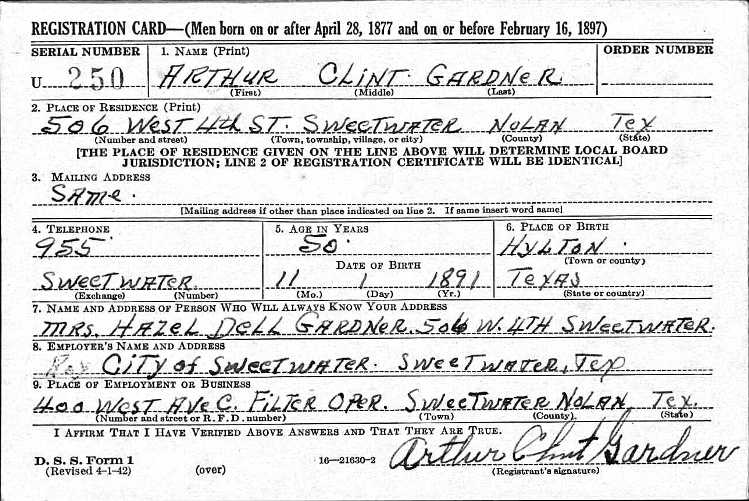 REGISTRATION CARD—(Men born on or after April 28, 1877 and on or before February 16, 1897)
SERIAL NUMBER 1. NAME (Print) ORDER NUMBER
U 250 ARTHUR CLINT GARDNER
(First) (Middle) (Last)
2. PLACE OF RESIDENCE (Print)
506 WEST 4th ST. SWEETWATER NOLAN TEX
(Number and street) (Town, township, village, or city) (County) (State)
[THE PLACE OF RESIDENCE GIVEN ON THE LINE ABOVE WILL DETERMINE LOCAL BOARD
JURISDICTION; LINE 2 OF REGISTRATION CERTIFICATE WILL BE IDENTICAL]
3. MAILING ADDRESS
SAME.
[Mailing address if other than place indicated on line 2. If same insert word same]
4. TELEPHONE 5. AGE IN YEARS 6. PLACE OF BIRTH
955 50 HYLTON
(Town or county)
DATE OF BIRTH
SWEETWATER 11 1 1891 TEXAS
(Exchange) (Number) (Mo.) (Day) (Yr.) (State or country)
7. NAME AND ADDRESS OF PERSON WHO WILL ALWAYS KNOW YOUR ADDRESS
MRS. HAZEL DELL GARDNER. 506 W. 4TH SWEETWATER.
8. EMPLOYER'S NAME AND ADDRESS
CITY of SWEETWATER. SWEETWATER, TEX
9. PLACE OF EMPLOYMENT OR BUSINESS
400 WEST AVE C. FILTER OPER. SWEETWATER NOLAN TEX.
(Number and street or R. F. D. number) (Town) (County) (State)
I AFFIRM THAT I HAVE VERIFIED ABOVE ANSWERS AND THAT THEY ARE TRUE.
D. S. S. Form 1
(Revised 4-1-42) (over) 16—21630-2 Arthur Clint Gardner
(Registrant's signature)